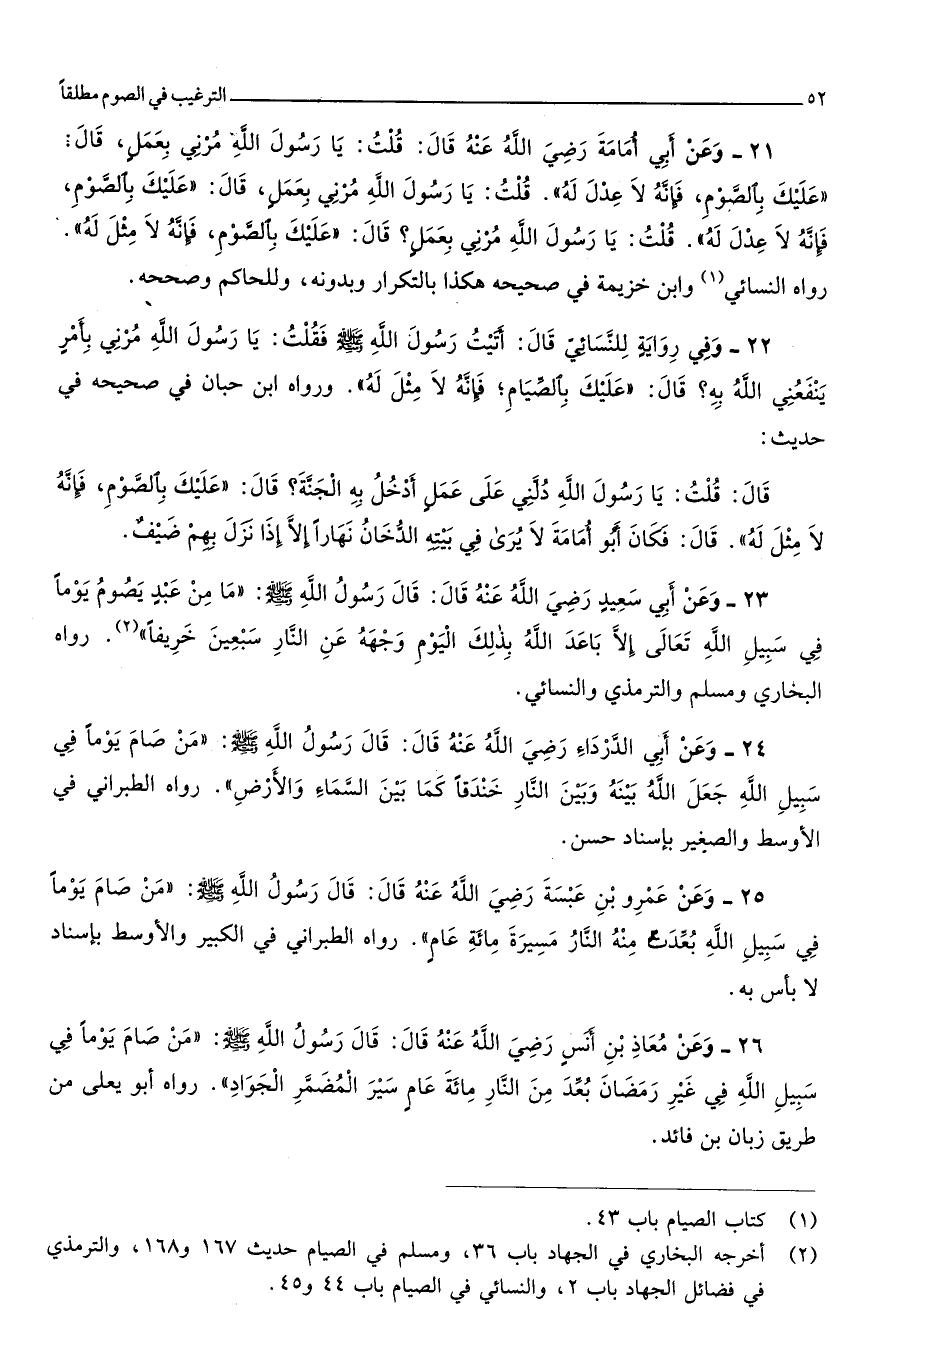 ٥٢ ــــــــــ الترغيب في الصوم مطلقاً
٢١ ـ وَعَنْ أَبِي أُمَامَةَ رَضِيَ اللَّهُ عَنْهُ قَالَ: قُلْتُ: يَا رَسُولَ اللَّهِ مُرْنِي بِعَمَلٍ، قَالَ:
«عَلَيْكَ بِٱلصَّوْمِ، فَإِنَّهُ لاَ عِدْلَ لَهُ». قُلْتُ: يَا رَسُولَ اللَّهِ مُرْنِي بِعَمَلٍ، قَالَ: «عَلَيْكَ بِٱلصَّوْمِ،
فَإِنَّهُ لاَ عِدْلَ لَهُ». قُلْتُ: يَا رَسُولَ اللَّهِ مُرْنِي بِعَمَلٍ؟ قَالَ: «عَلَيْكَ بِٱلصَّوْمِ، فَإِنَّهُ لاَ مِثْلَ لَهُ».
رواه النسائي(١) وابن خزيمة في صحيحه هكذا بالتكرار وبدونه، وللحاكم وصححه.
٢٢ ـ وَفِي رِوَايَةٍ لِلنَّسَائِيِّ قَالَ: أَتَيْتُ رَسُولَ اللَّهِ ﷺ فَقُلْتُ: يَا رَسُولَ اللَّهِ مُرْنِي بِأَمْرٍ
يَنْفَعُنِي اللَّهُ بِهِ؟ قَالَ: «عَلَيْكَ بِٱلصِّيَامِ؛ فَإِنَّهُ لاَ مِثْلَ لَهُ». ورواه ابن حبان في صحيحه في
حديث:
قَالَ: قُلْتُ: يَا رَسُولَ اللَّهِ دُلَّنِي عَلَى عَمَلٍ أَدْخُلُ بِهِ الْجَنَّةَ؟ قَالَ: «عَلَيْكَ بِٱلصَّوْمِ، فَإِنَّهُ
لاَ مِثْلَ لَهُ». قَالَ: فَكَانَ أَبُو أُمَامَةَ لاَ يُرَىٰ فِي بَيْتِهِ الدُّخَانُ نَهَاراً إِلاَّ إِذَا نَزَلَ بِهِمْ ضَيْفٌ.
٢٣ ـ وَعَنْ أَبِي سَعِيدٍ رَضِيَ اللَّهُ عَنْهُ قَالَ: قَالَ رَسُولُ اللَّهِ ﷺ: «مَا مِنْ عَبْدٍ يَصُومُ يَوْماً
فِي سَبِيلِ اللَّهِ تَعَالَى إِلاَّ بَاعَدَ اللَّهُ بِذٰلِكَ الْيَوْمِ وَجْهَهُ عَنِ النَّارِ سَبْعِينَ خَرِيفاً»(٢). رواه
البخاري ومسلم والترمذي والنسائي.
٢٤ ـ وَعَنْ أَبِي الدَّرْدَاءِ رَضِيَ اللَّهُ عَنْهُ قَالَ: قَالَ رَسُولُ اللَّهِ ﷺ: «مَنْ صَامَ يَوْماً فِي
سَبِيلِ اللَّهِ جَعَلَ اللَّهُ بَيْنَهُ وَبَيْنَ النَّارِ خَنْدَقاً كَمَا بَيْنَ السَّمَاءِ وَالأَرْضِ». رواه الطبراني في
الأوسط والصغير بإسناد حسن.
٢٥ ـ وَعَنْ عَمْرِو بْنِ عَبْسَةَ رَضِيَ اللَّهُ عَنْهُ قَالَ: قَالَ رَسُولُ اللَّهِ ﷺ: «مَنْ صَامَ يَوْماً
فِي سَبِيلِ اللَّهِ بُعِّدَتْ مِنْهُ النَّارُ مَسِيرَةَ مِائَةِ عَامٍ». رواه الطبراني في الكبير والأوسط بإسناد
لا بأس به.
٢٦ ـ وَعَنْ مُعَاذِ بْنِ أَنَسٍ رَضِيَ اللَّهُ عَنْهُ قَالَ: قَالَ رَسُولُ اللَّهِ ﷺ: «مَنْ صَامَ يَوْماً فِي
سَبِيلِ اللَّهِ فِي غَيْرِ رَمَضَانَ بُعِّدَ مِنَ النَّارِ مِائَةَ عَامٍ سَيْرَ الْمُضَمَّرِ الْجَوَادِ». رواه أبو يعلى من
طريق زبان بن فائد.
(١) كتاب الصيام باب ٤٣.
(٢) أخرجه البخاري في الجهاد باب ٣٦، ومسلم في الصيام حديث ١٦٧ و١٦٨، والترمذي
في فضائل الجهاد باب ٢، والنسائي في الصيام باب ٤٤ و٤٥.